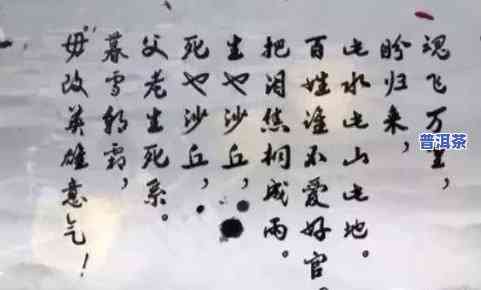 魂飞万里，
盼归来，
此水此山此地。
百姓谁不爱好官。
把泪焦桐成雨。
生也沙丘，
死也沙丘，
父老生死系。
暮雪朝霜，
毋改英雄意气！
普洱茶